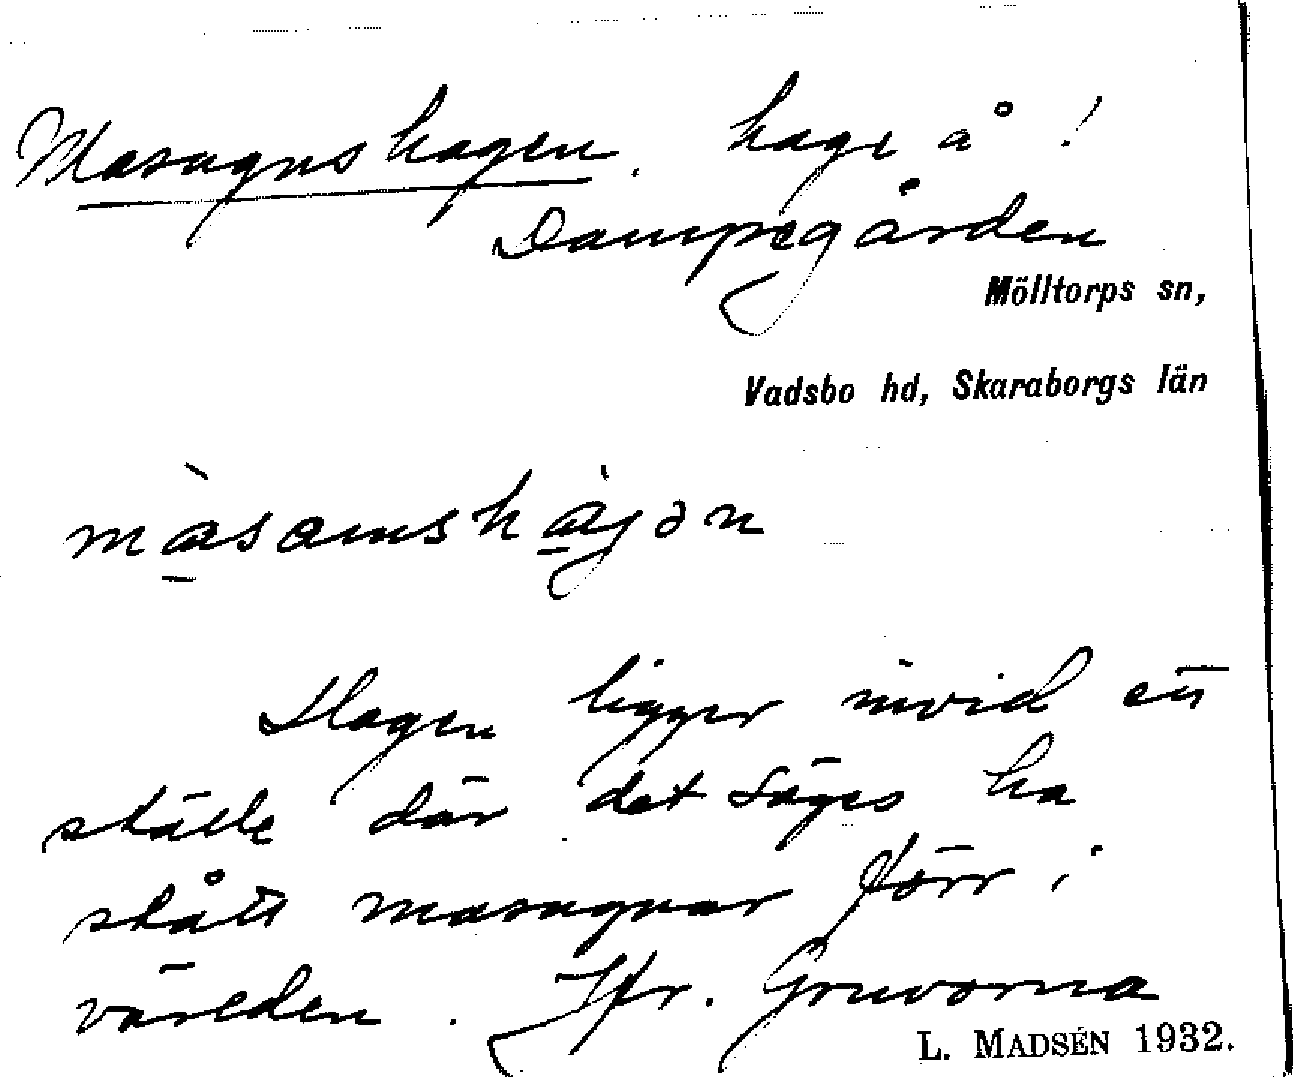 Masugnshagen. hage å!
Dampegården
Mölltorps sn,
Vadsbo hd, Skaraborgs län
màsamshàjən
Hagen ligger invid ett
ställe där det säges ha
stått masugnar förr i
världen. Jfr. Gruvorna
L. MADSÉN 1932.